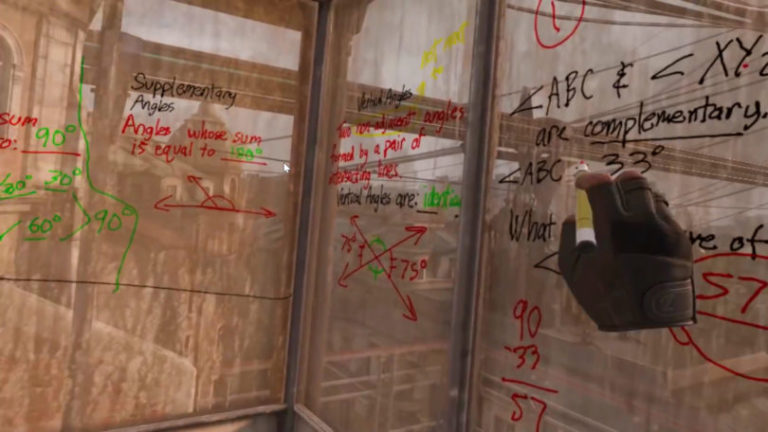 sum
90°
30°
60° 90°
Supplementary
Angles
Angles whose sum
is equal to 180°
Vertical Angles
two non-adjacent angles
formed by a pair of
intersecting lines.
Vertical Angles are:
75°
75°
①
∠ABC & ∠XYZ
are complementary.
∠ABC 33°
What
of
∠
57
90
-33
57